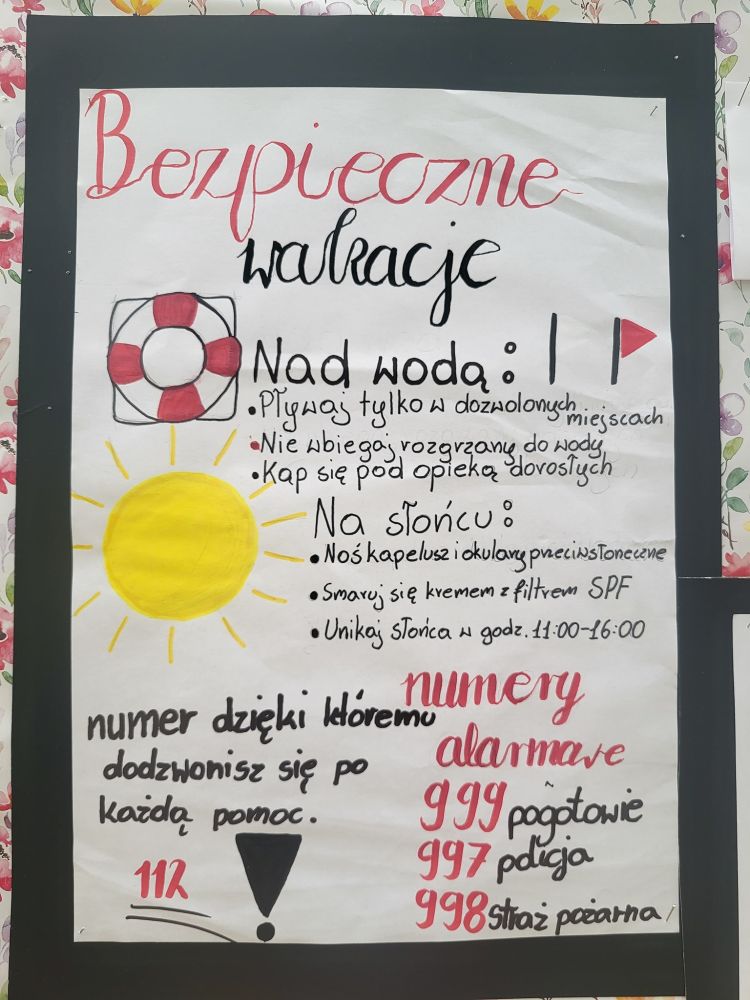 Bezpieczne
wakacje
Nad wodą:
• Pływaj tylko w dozwolonych miejscach
• Nie wbiegaj rozgrzany do wody
• Kąp się pod opieką dorosłych
Na słońcu:
• Noś kapelusz i okulary przeciwsłoneczne
• Smaruj się kremem z filtrem SPF
• Unikaj słońca w godz. 11:00-16:00
numer dzięki któremu
dodzwonisz się po
każdą pomoc.
112
numery
alarmowe
999 pogotowie
997 policja
998 straż pożarna